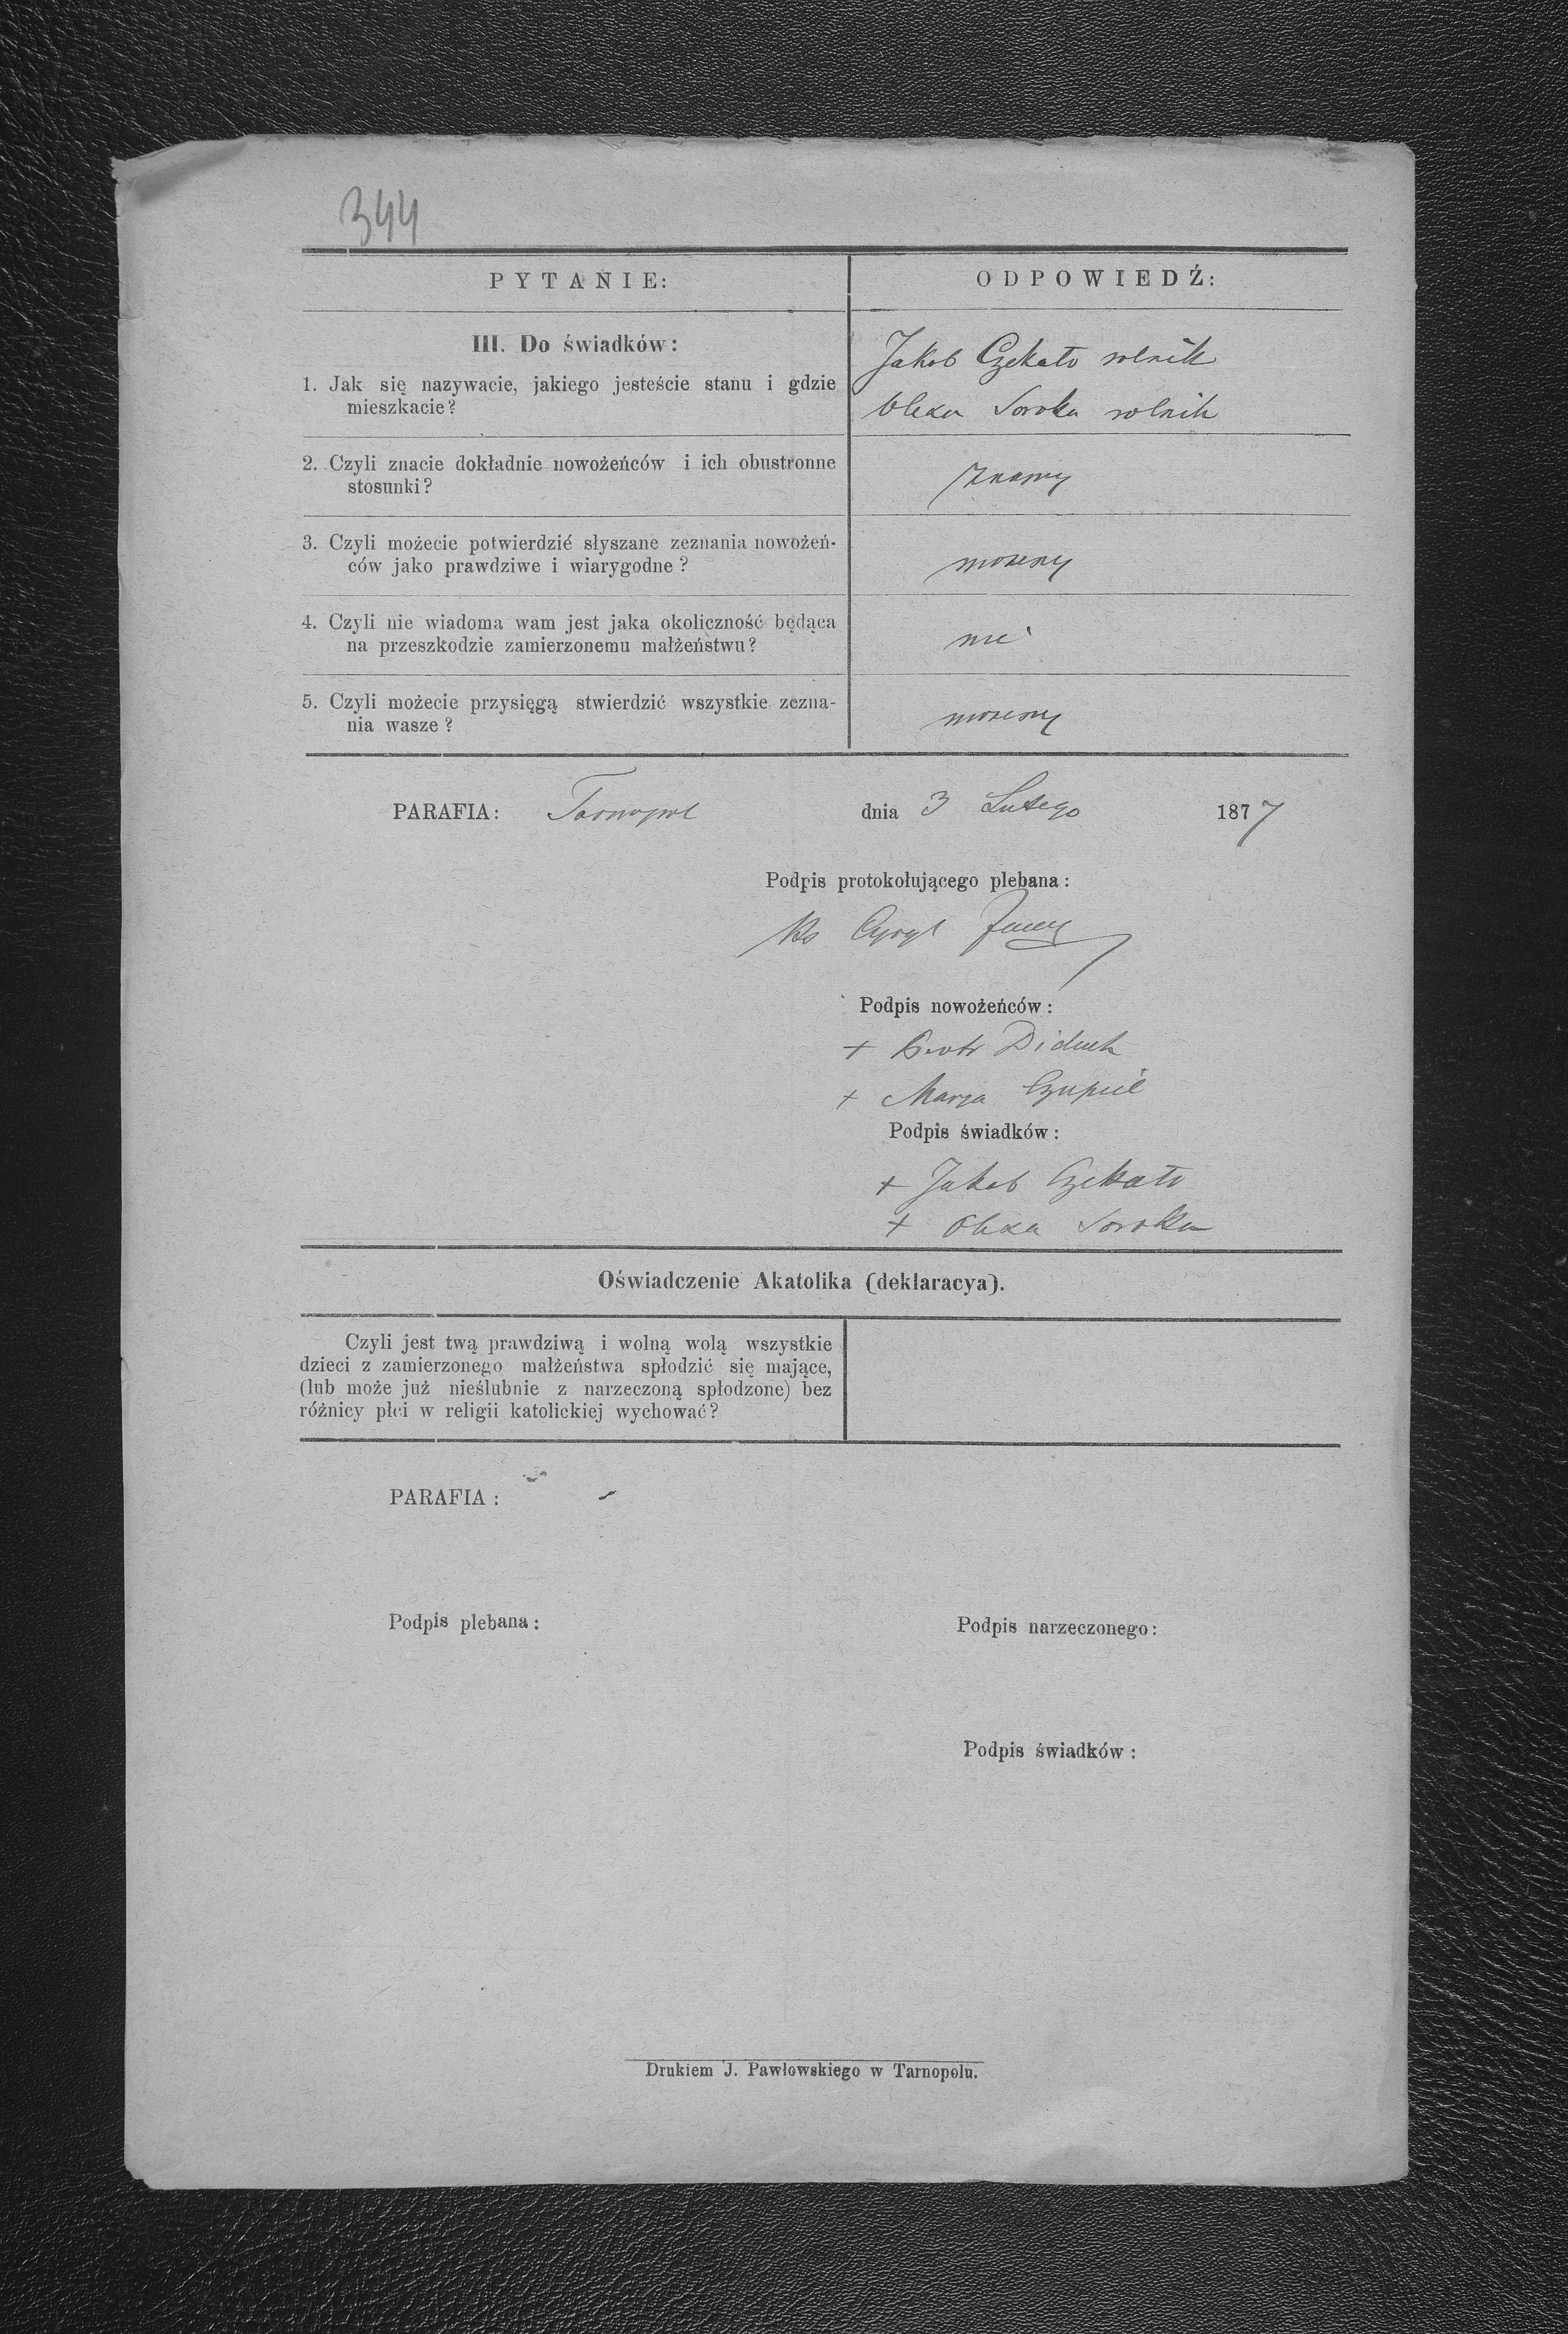 344
PYTANIE:
ODPOWIEDŹ:
III. Do świadków:
1. Jak się nazywacie, jakiego jesteście stanu i gdzie
mieszkacie?
Jakob Czekało rolnik
Olexa Soroka rolnik
2. Czyli znacie dokładnie nowożeńców i ich obustronne
stosunki?
znamy
3. Czyli możecie potwierdzić słyszane zeznania nowożeń-
ców jako prawdziwe i wiarygodne?
możemy
4. Czyli nie wiadoma wam jest jaka okoliczność będąca
na przeszkodzie zamierzonemu małżeństwu?
nie
5. Czyli możecie przysięgą stwierdzić wszystkie zezna-
nia wasze?
możemy
PARAFIA: Tarnopol dnia 3 Lutego 1877
Podpis protokołującego plebana:
Ks Cyryl
Podpis nowożeńców:
+ Piotr Diduch
+ Marya Czupil
Podpis świadków:
+ Jakob Czekało
+ Olexa Soroka
Oświadczenie Akatolika (deklaracya).
Czyli jest twą prawdziwą i wolną wolą wszystkie
dzieci z zamierzonego małżeństwa spłodzić się mające,
(lub może już nieślubnie z narzeczoną spłodzone) bez
różnicy płci w religii katolickiej wychować?
PARAFIA:
Podpis plebana:
Podpis narzeczonego:
Podpis świadków:
Drukiem J. Pawłowskiego w Tarnopolu.